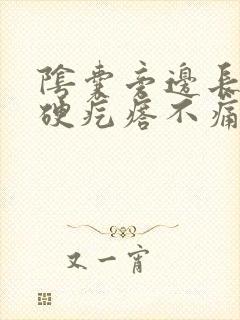 陰囊旁邊長
硬疙瘩不痛
又一宵